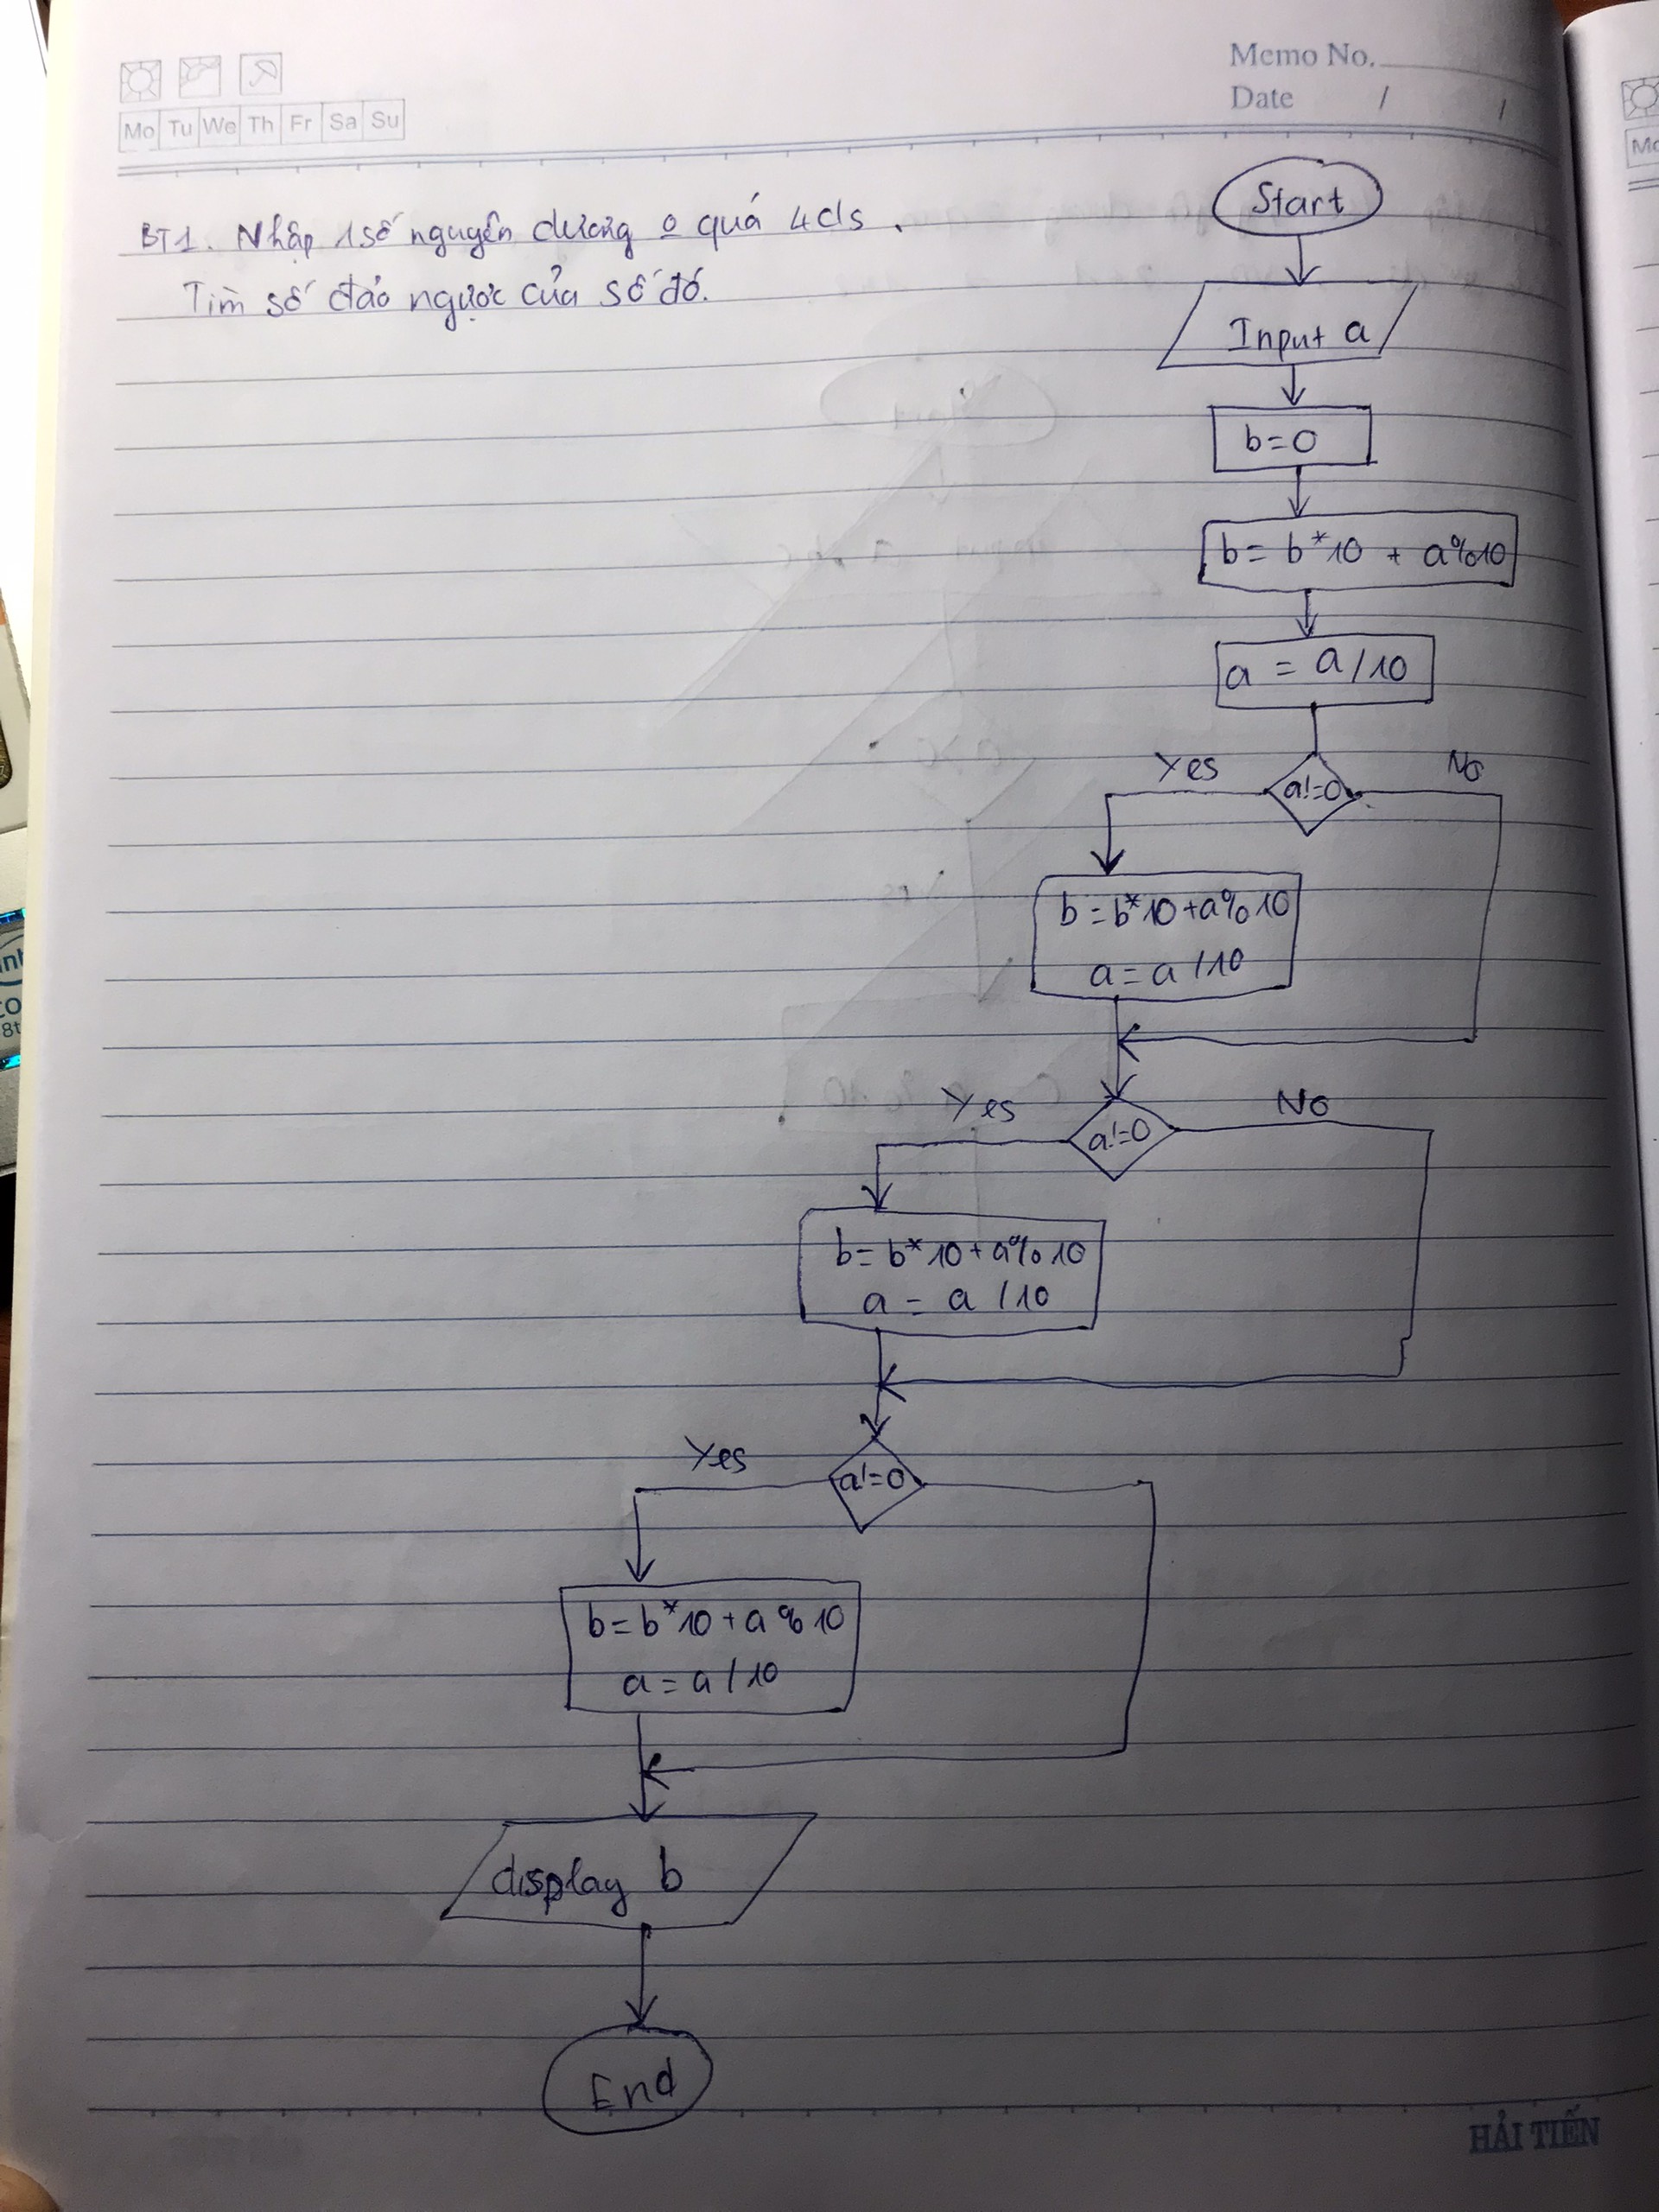 Memo No.
Date / /
Mo Tu We Th Fr Sa Su
BT1. Nhập 1 số nguyên dương o quá 4cls.
Tìm số đảo ngược của số đó.
Start
Input a
b=0
b= b*10 + a%10
a = a/10
Yes
a!=0
No
b=b*10+a%10
a= a /10
Yes
a!=0
No
b= b*10+a%10
a = a /10
Yes
a!=0
b=b*10+a%10
a=a/10
display b
End
HẢI TIẾN